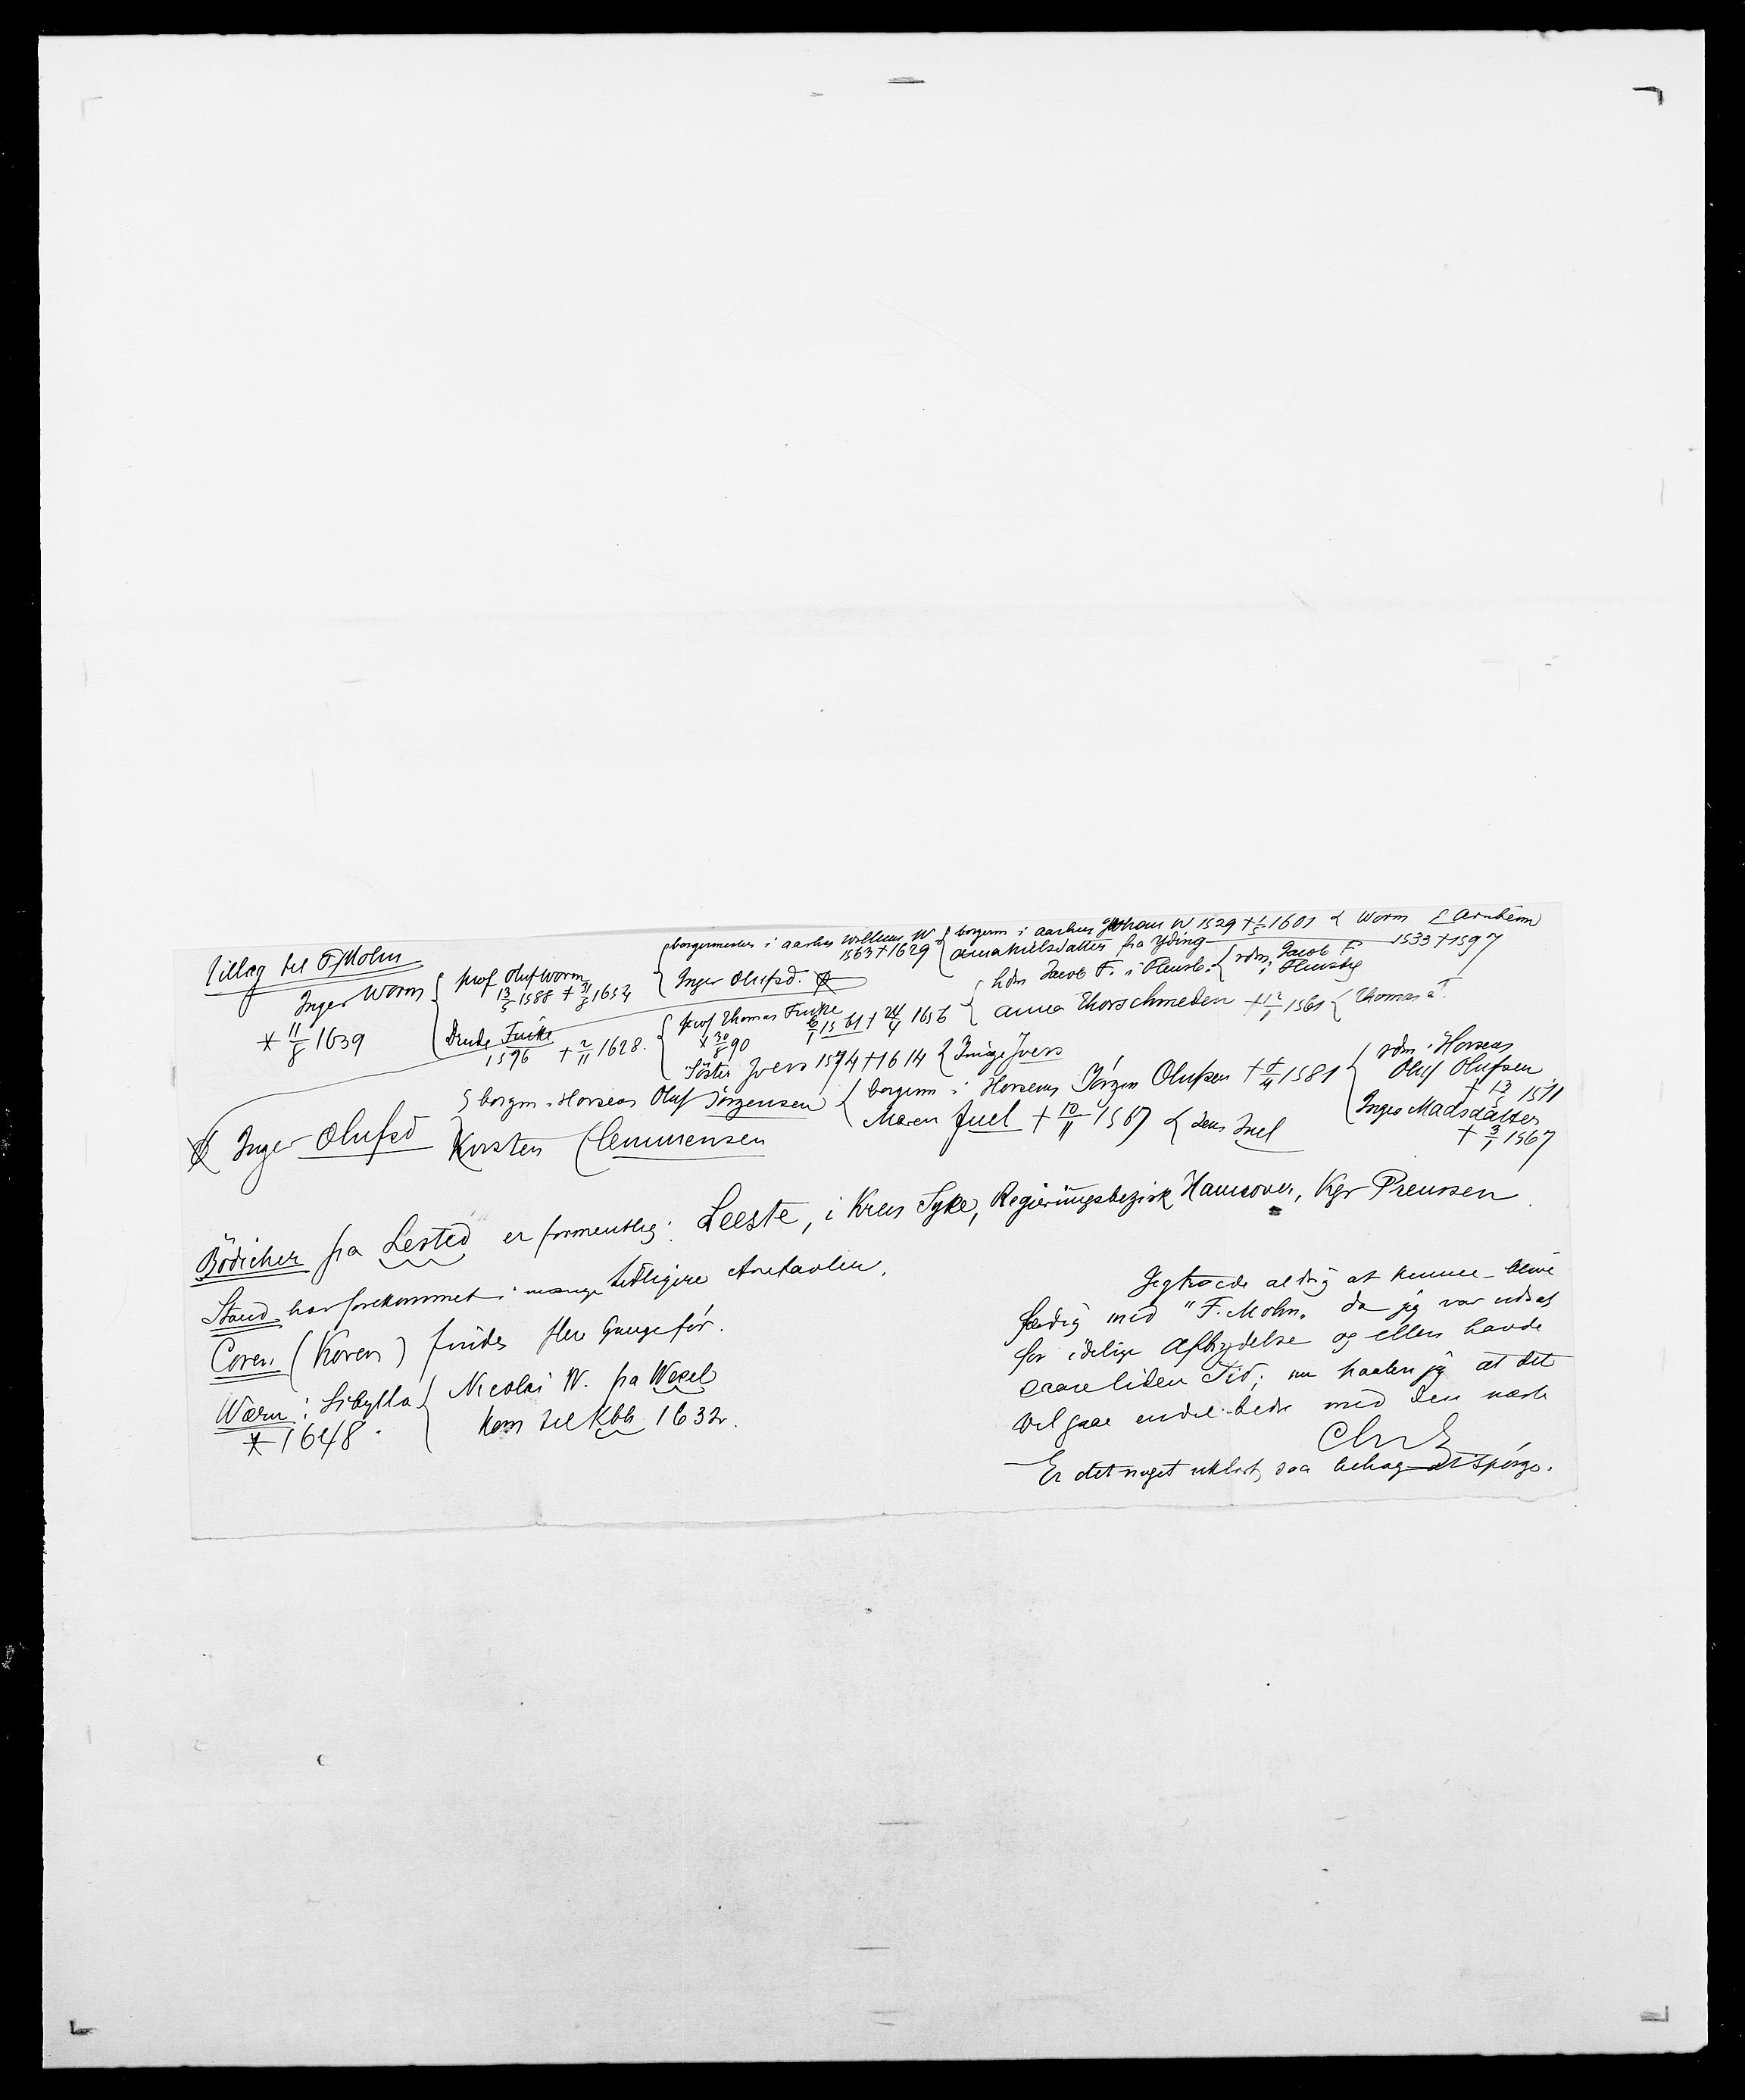 Tillæg til F. Mohn
Inger Worm
* 11/8 1639
prof Oluf Worm
13/5 1588 + 31/8 1654
Drude Finke
1596 + 2/11 1628.
borgermester i Aarhus Willum W
1563 + 1629
Inger Olufsd.
prof Thomas Finke
* 6/1 1561 + 24/4 1656
30/8 90
Söster Ivers 1574 + 1614 Iver
borgerm i Aarhus Johan W 1529 + 1601 Worm Arnhem
Anna Nielsdatter fra Yding 1533 + 1597
hdm Jacob F. i Flensb. rdm Jacob F.
i Flensbg
Anna Thorschmeden + 12/1 1561 Thomas T.
Inger Olufsd
borgm i Horsens Oluf Jörgensen
Kirsten Clemmensen
borgerm i Horsens Jörgen Olufsen + 5/4 1581
Maren Juel + 10/11 1587 Jens Juel
rdm i Horsens
Oluf Olufsen
+ 13/5 1571
Inger Madsdatter
+ 3/1 1567
Bödicher fra Lested er formentlig: Leeste, i Kreis Syke, Regierungsbezirk Hannover, Kgr Preussen.
Staud har forekommet i mange tidligere Anetavler.
Coren (Koren) findes flere Gange för.
Wærn: Sibylla
* 1648.
Nicolai W. fra Wesel
kom til Kbh 1632.
Jeg troede aldrig at kunne blive
færdig med "F. Mohn" da jeg var udsat
for idelige Afbrydelse og ellers havde
liden Tid; nu haaber jeg at det
vil gaae endel bedre med den næste
Er det noget uklart, saa behag at spörge.